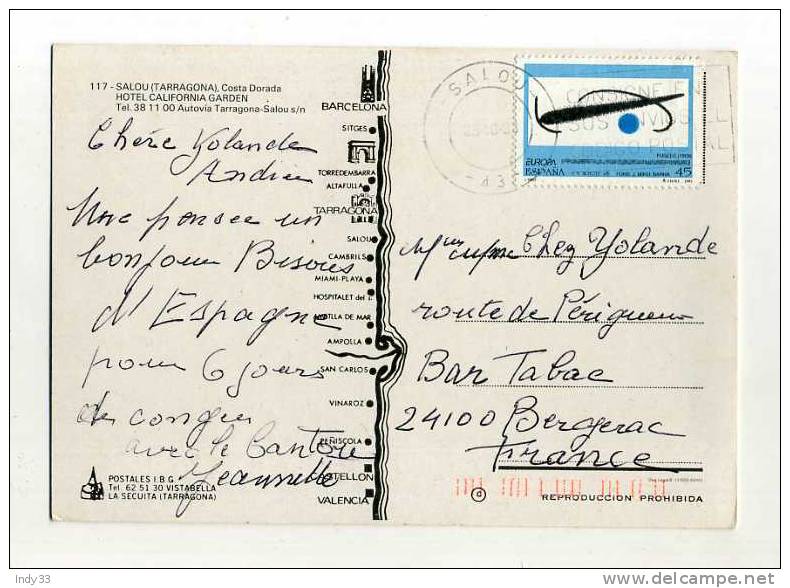 117 - SALOU (TARRAGONA), Costa Dorada
HOTEL CALIFORNIA GARDEN
Tel. 38 11 00 Autovia Tarragona-Salou s/n
Chère Yolande
Andrée
Une pensée un
bonjour Bisous
d'Espagne
pour 6 jours
de congés
avec le Cantou
Jeannette
POSTALES I.B.G.
Tel. 62 51 30 VISTABELLA
LA SECUITA (TARRAGONA)
BARCELONA
SITGES
TORREDEMBARRA
ALTAFULLA
TARRAGONA
SALOU
CAMBRILS
MIAMI-PLAYA
HOSPITALET del I.
AMETLLA DE MAR
AMPOLLA
SAN CARLOS
VINAROZ
PEÑISCOLA
CASTELLON
VALENCIA
SALOU
43
CONSIGNE EN
SUS ENVIOS EL
CODIGO POSTAL
EUROPA
ESPAÑA
45
Chez Yolande
route de Périgueux
Bar Tabac
24100 Bergerac
France
REPRODUCCION PROHIBIDA
Indy33
http://www.delcampe.net